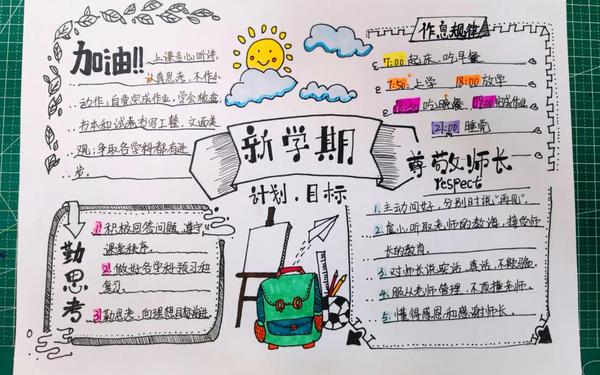 加油!!
上课专心听讲,
认真思考,不作小
动作;自觉完成作业,学会检查,
书本和试卷书写工整,文面美
观;争取各学科都有进
步。
作息规律
7:00起床、吃早餐
7:50上学 18:00放学
吃晚餐, 19:00完成作业
21:00 睡觉
新学期
计划,目标
尊敬师长
respect
1.主动问好,分别时说“再见”.
2.虚心听取老师的教诲,接受师
长的教育.
3.对师长说实话、真话,不欺骗.
4.服从老师管理,不顶撞老师.
5.懂得感恩和感谢师长.
勤思考
1.积极回答问题,遵守
课堂秩序.
2.做好各学科预习和
复习.
3.勤思考,向理想目标前进